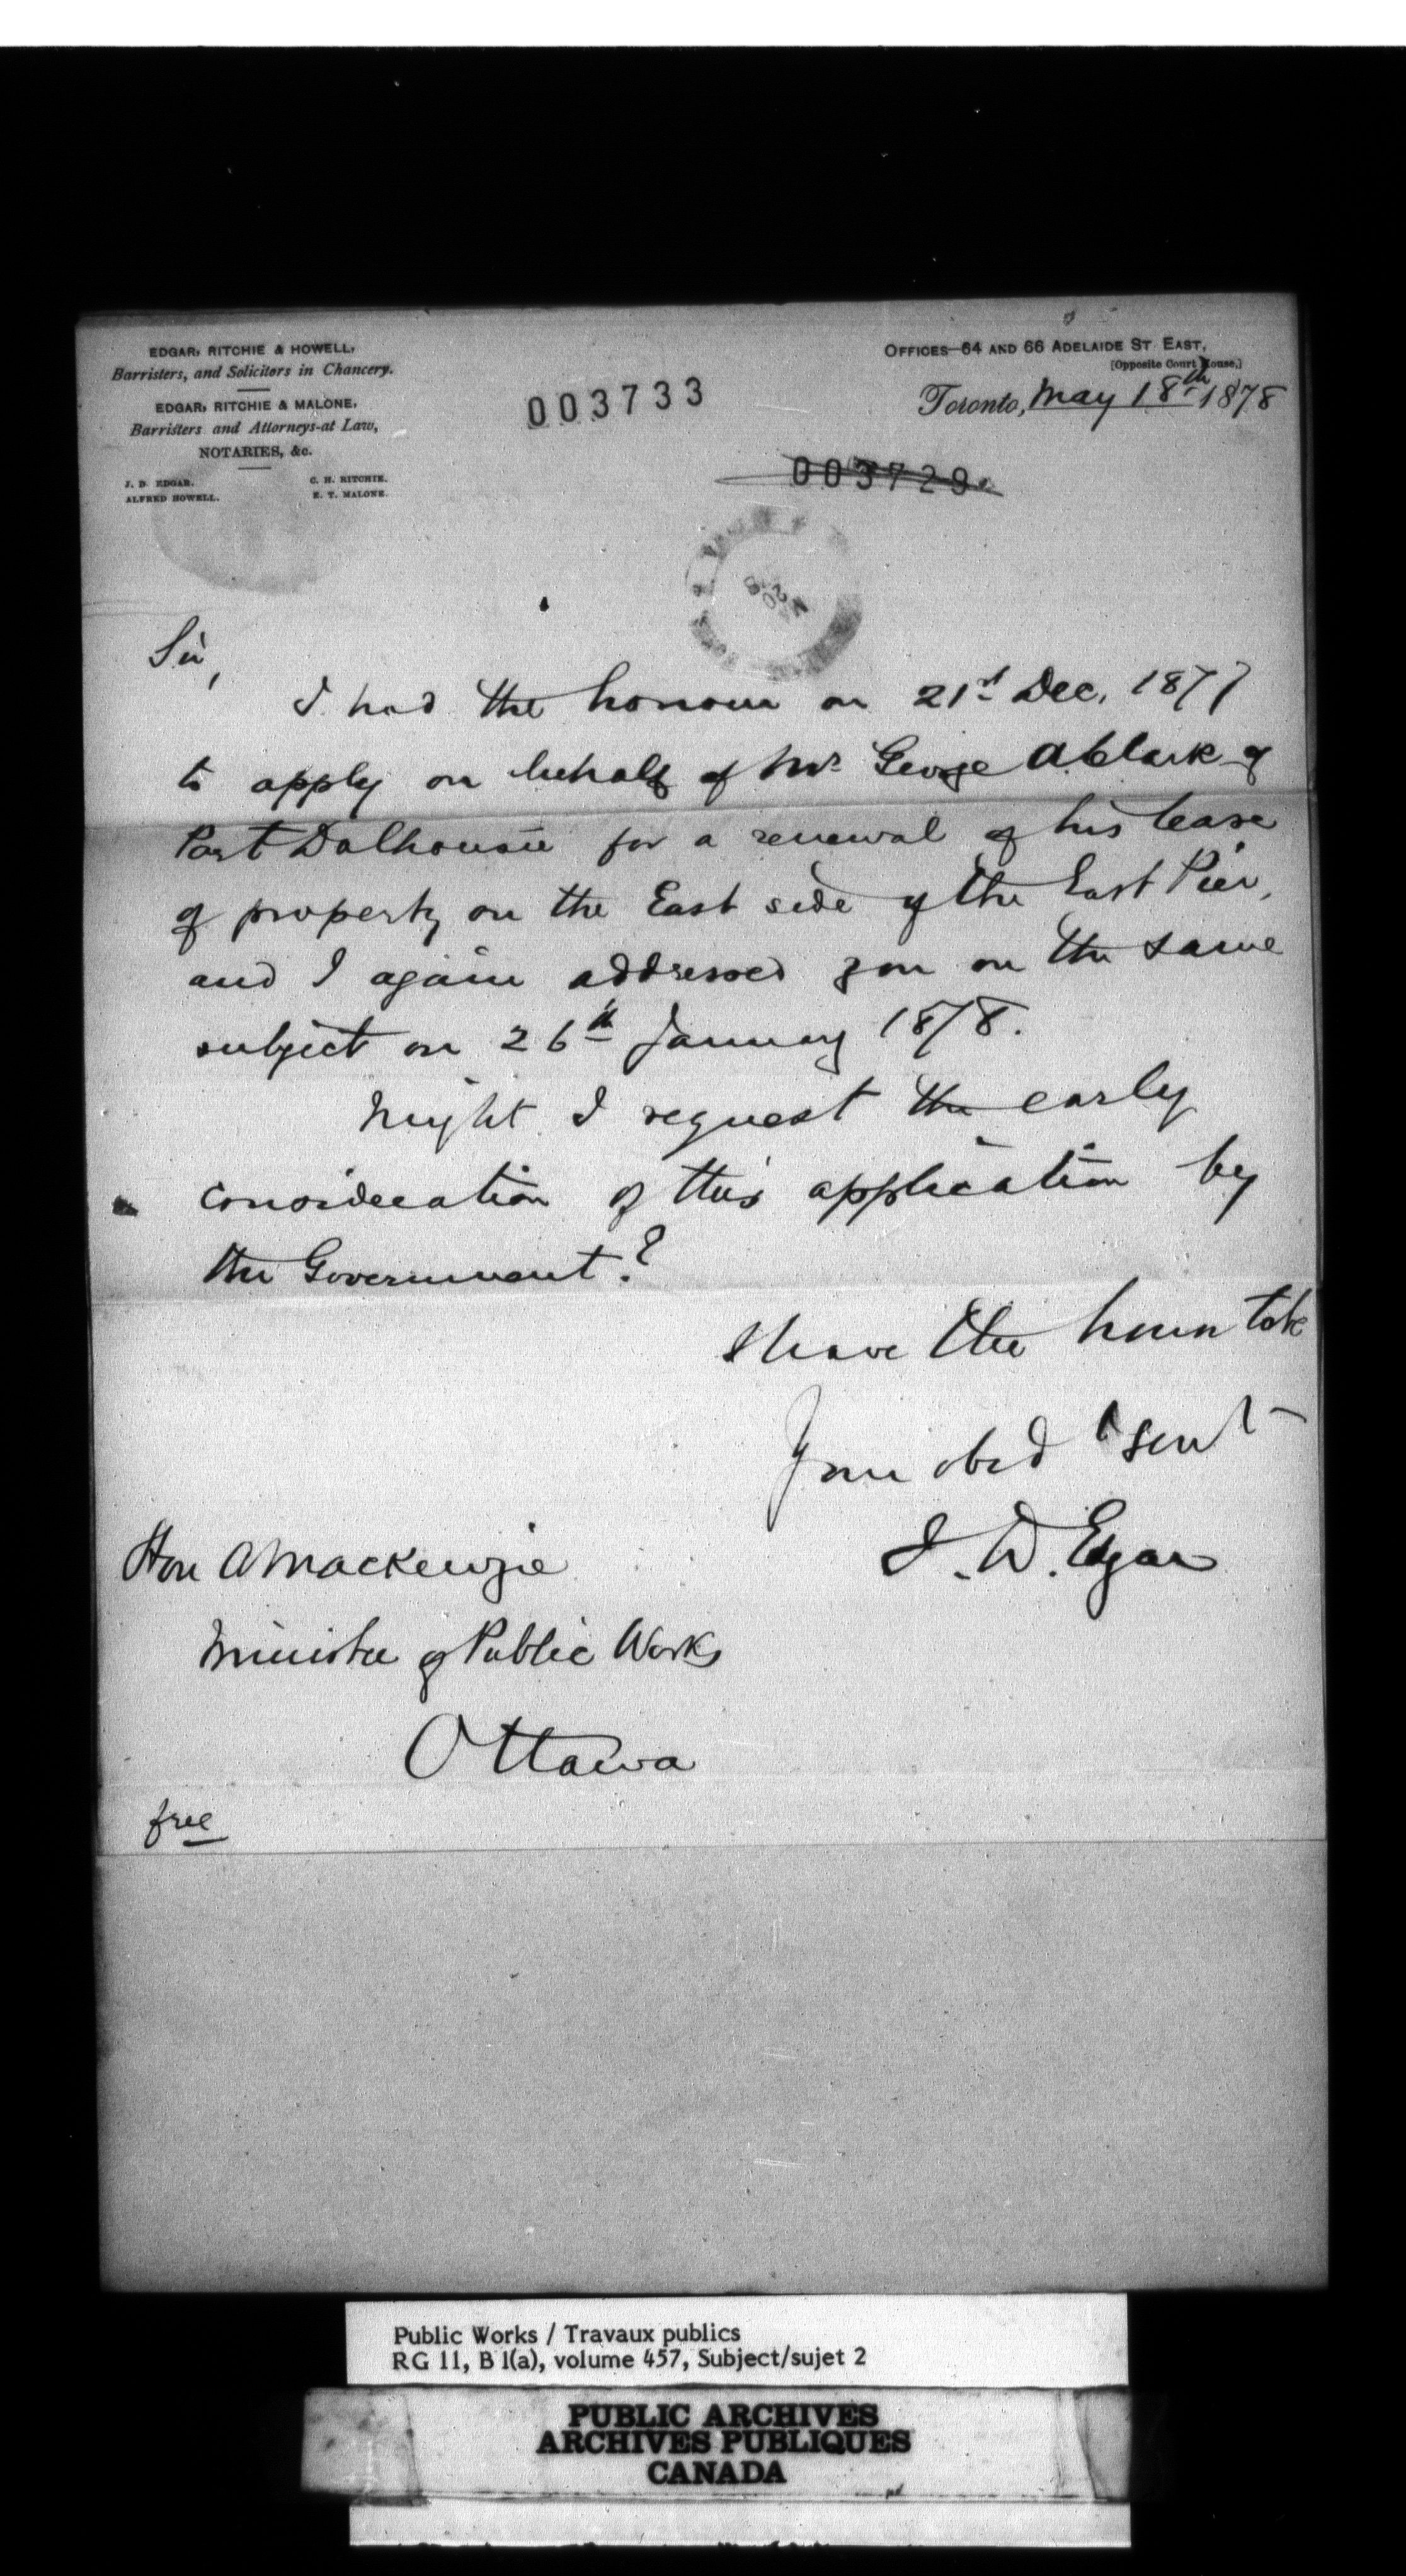 EDGAR, RITCHIE & HOWELL,
Barristers, and Solicitors in Chancery.
EDGAR, RITCHIE & MALONE,
Barristers and Attorneys-at Law,
NOTARIES, &c.
J. D. EDGAR. C. H. RITCHIE.
ALFRED HOWELL. E. T. MALONE.
OFFICES—64 AND 66 ADELAIDE ST EAST,
[Opposite Court House,]
Toronto, May 18th 1878
003733
003729
Sir,
I had the honour on 21st Dec. 1877
to apply on behalf of Mr. George A Clark of
Port Dalhousie for a renewal of his lease
of property on the East side of the East Pier,
and I again addressed you on the same
subject on 26th January 1878.
Might I request the early
consideration of this application by
the Government?
I have the honor to be
Your obed t servt
J. D. Edgar
Hon A Mackenzie
Minister of Public Works
Ottawa
free
Public Works / Travaux publics
RG 11, B 1(a), volume 457, Subject/sujet 2
PUBLIC ARCHIVES
ARCHIVES PUBLIQUES
CANADA